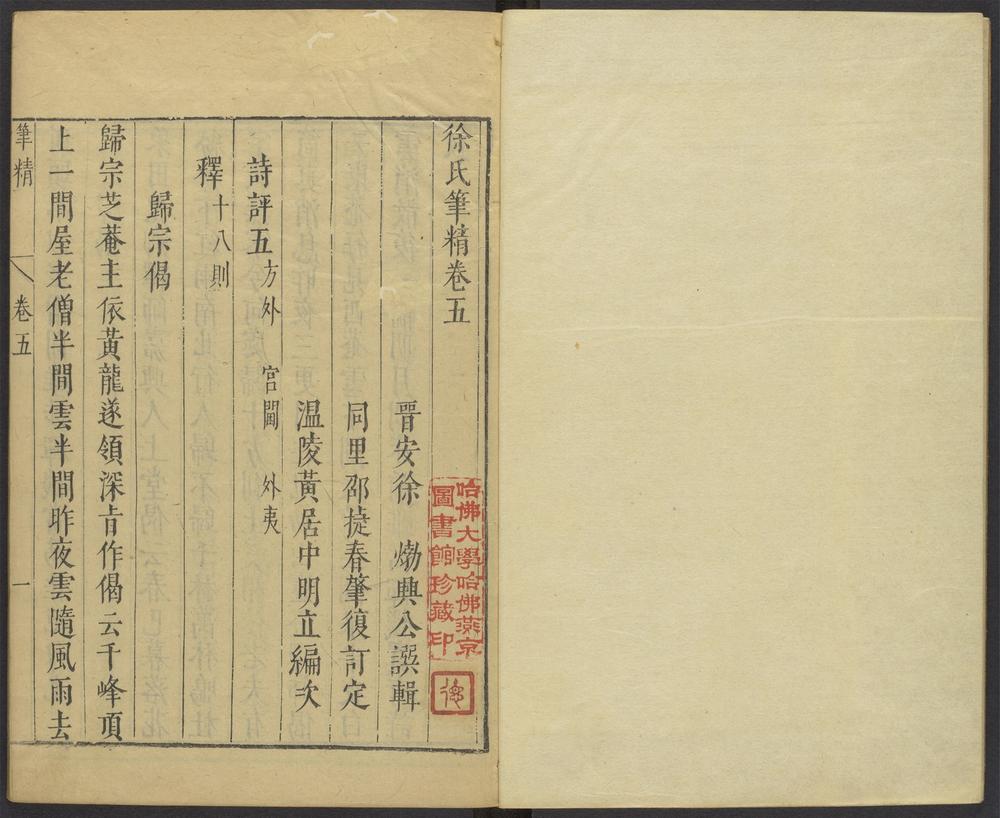 徐氏筆精卷五
晉安徐𤊹興公譔輯
同里邵捷春肇復訂定
温陵黃居中明立編次
詩評五 方外 宮閫 外夷
釋十八則
歸宗偈
歸宗芝菴主依黃龍遂領深㫖作偈云千峰頂
上一間屋老僧半間雲半間昨夜雲隨風雨去
筆精 卷五 一
哈佛大學哈佛燕京
圖書館珍藏印